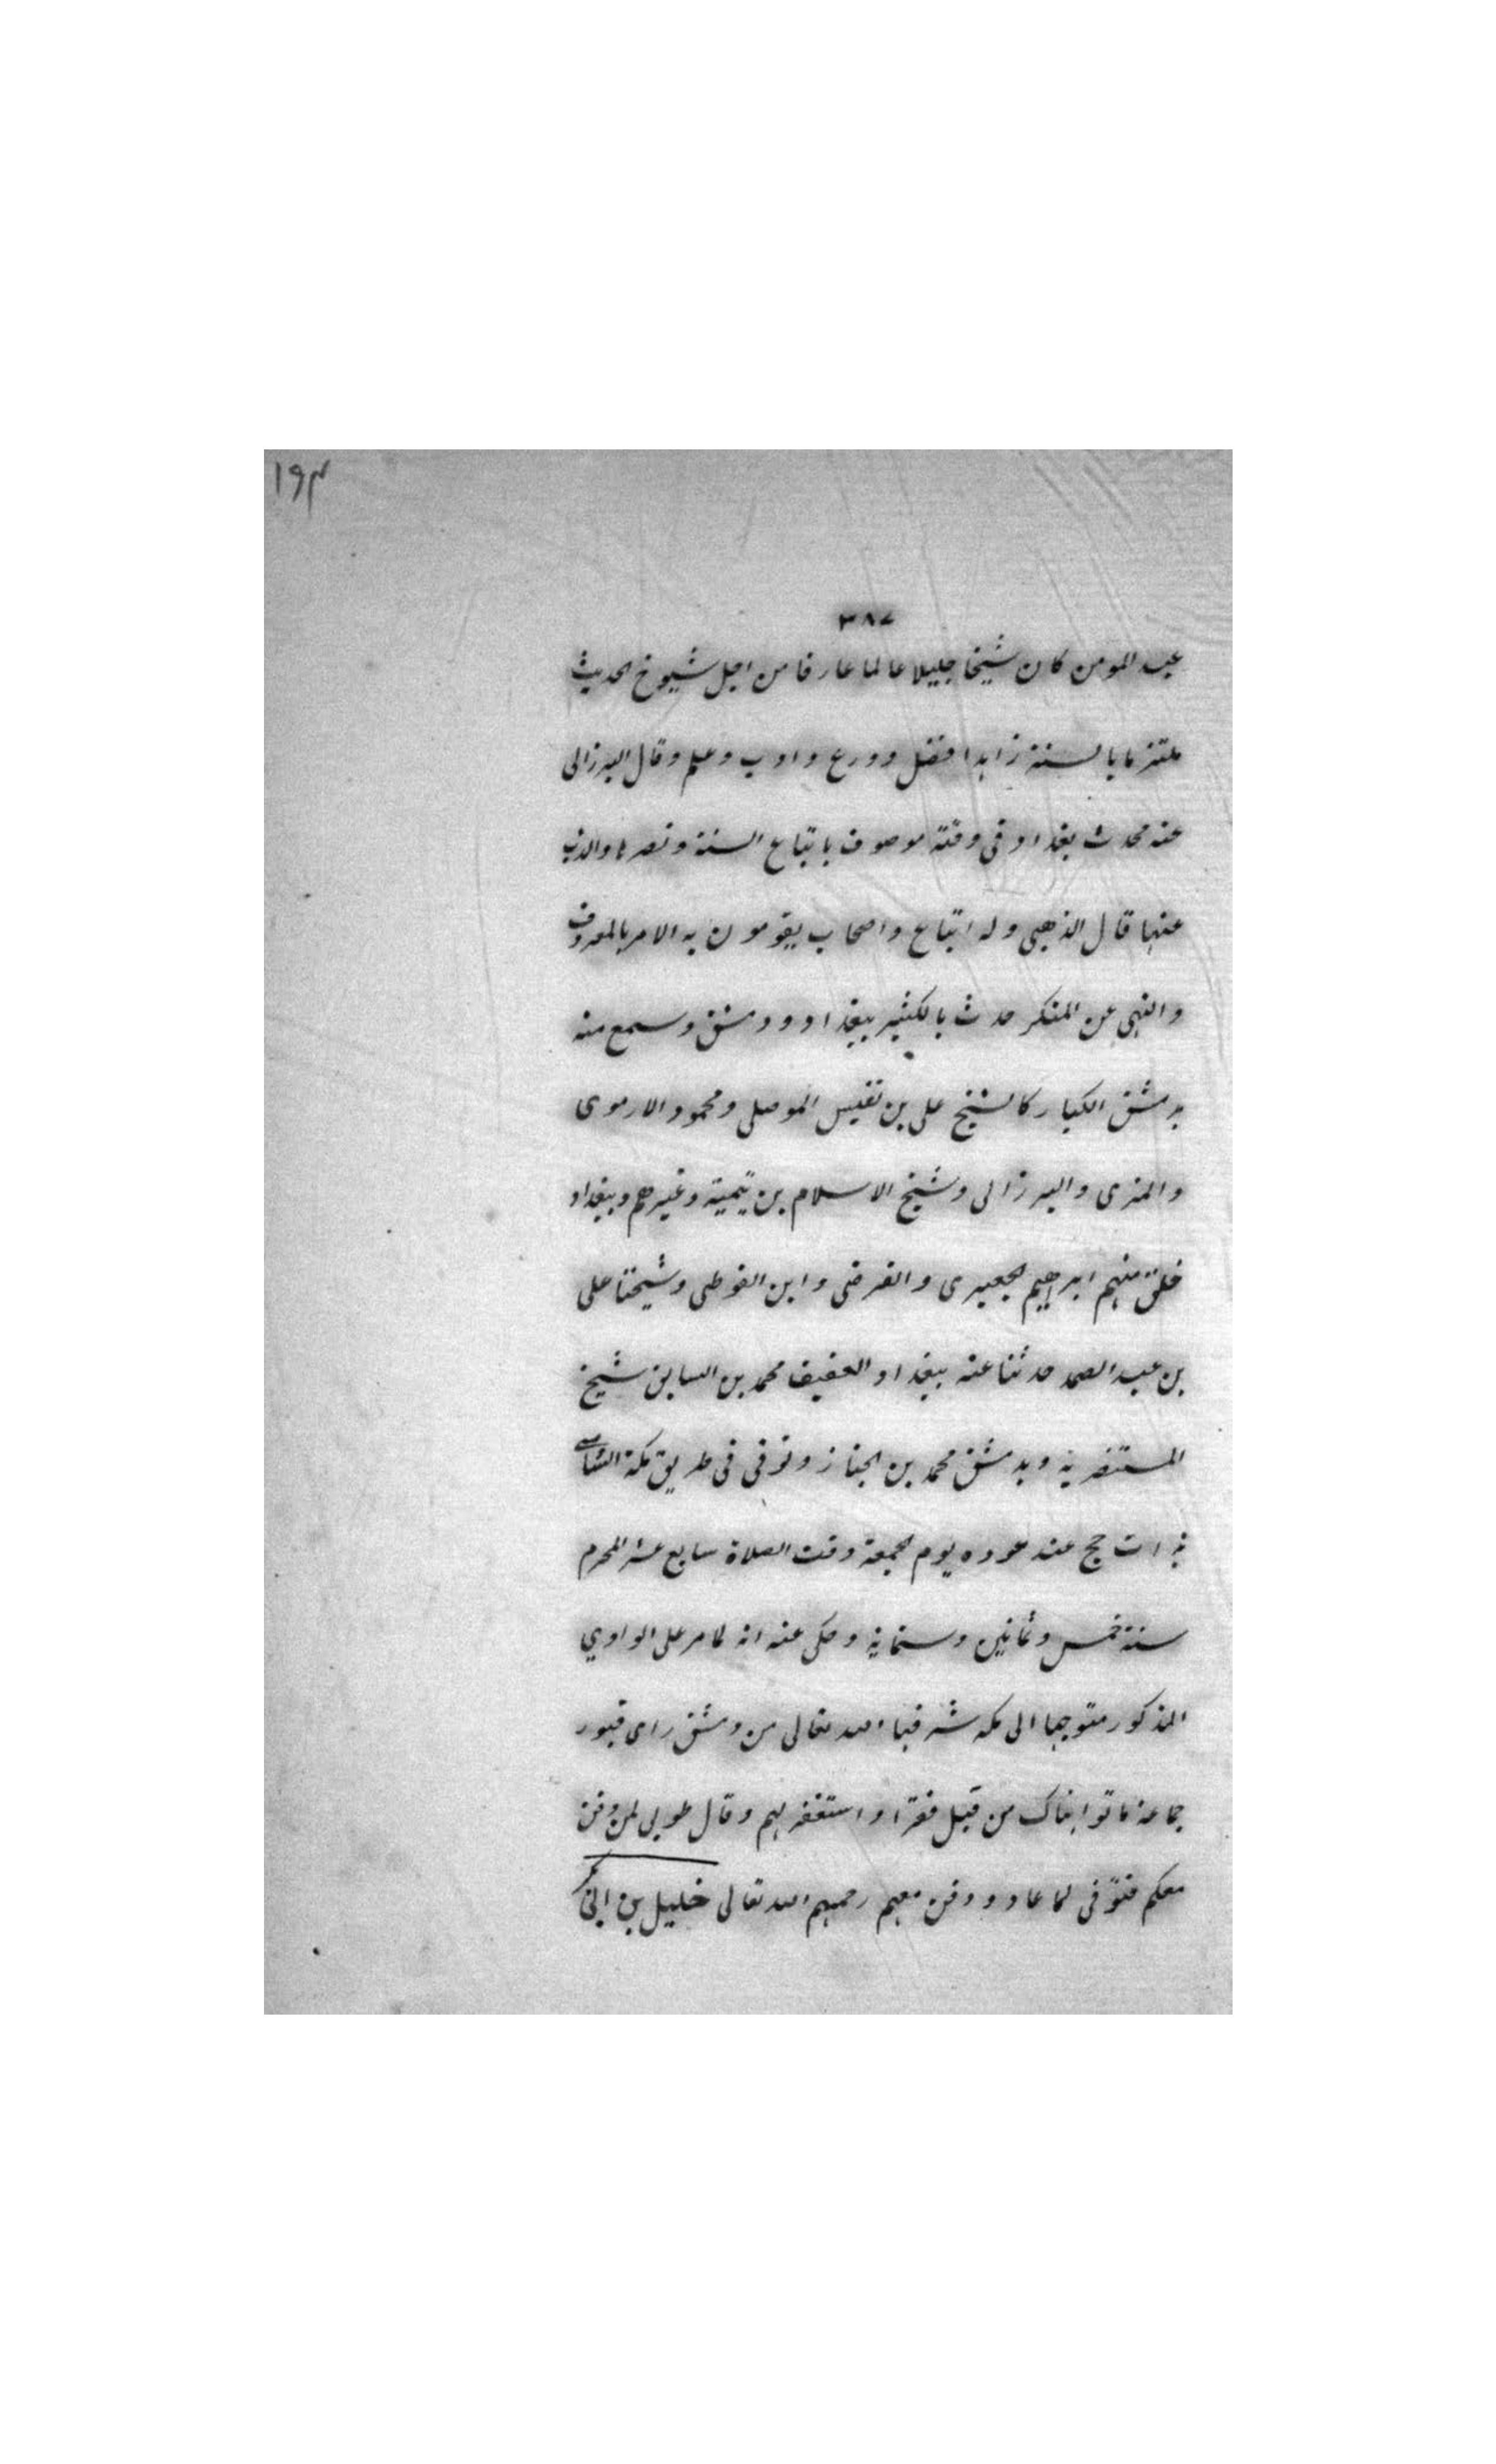 ١٩٣
٣٨٧
عبد المومن كان شيخا جليلا عالما عارفا من اجل شيوخ الحديث
ملتزما بالسنة زاهدا فضل وورع وادب وعلم وقال البرزالى
عنه محدث بغداد فى وقته موصوف باتباع السنة ونصرها والذب
عنها قال الذهبى وله اتباع واصحاب يقومون به الامر بالمعروف
والنهى عن المنكر حدث بالكثير ببغداد ودمشق وسمع منه
بدمشق الكبار كالشيخ على بن نفيس الموصلى ومحمود الارموى
والمزى والبرزالى وشيخ الاسلام بن تيمية وغيرهم وببغداد
خلق منهم ابراهيم الجعبرى والفرضى وابن الفوطى وشيخنا على
بن عبد الصمد حدثنا عنه ببغداد العفيف محمد بن السابق شيخ
المستنصرية وبدمشق محمد بن الخباز وتوفى فى طريق مكة الشامى
بذات حج عند عوده يوم الجمعة وقت الصلاة سابع عشر المحرم
سنة خمس وثمانين وستماية وحكى عنه انه لما مر على الوادي
المذكور متوجها الى مكه شرفها الله تعالى من دمشق راى قبور
جماعة ماتوا هناك من قبل فقرا واستغفر لهم وقال طوبى لمن دفن
معكم فتوفى لما عاد ودفن معهم رحمهم الله تعالى خليل بن ابى